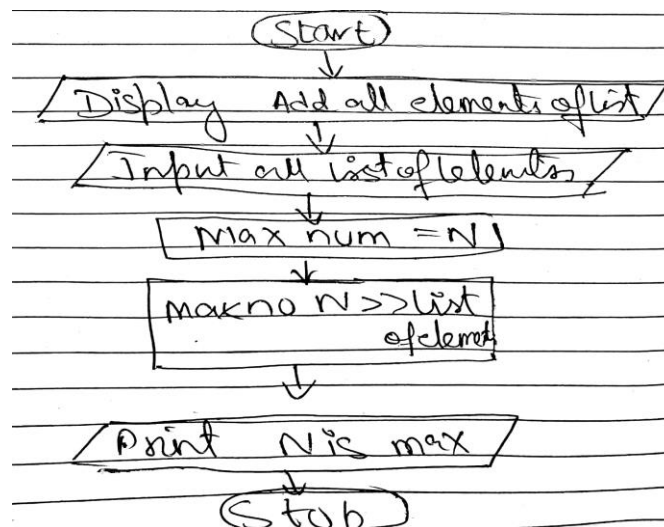 Start
Display Add all elements of list
Input all list of elements
Max num = N
max no N >> list
of element
Print N is max
Stop